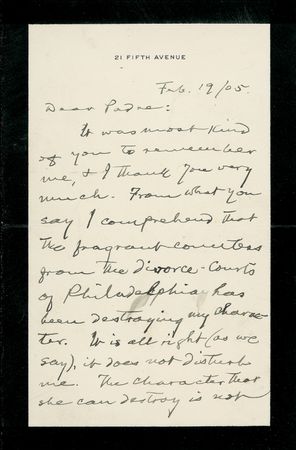 21 FIFTH AVENUE
Feb. 19/05.
Dear Padre:
It was most kind
of you to remember
me, & I thank you very
much. From what you
say I comprehend that
the fragrant countess
from the divorce-courts
of Philadelphia has
been destroying my charac-
ter. It is all right (as we
say), it does not disturb
me. The character that
she can destroy is not